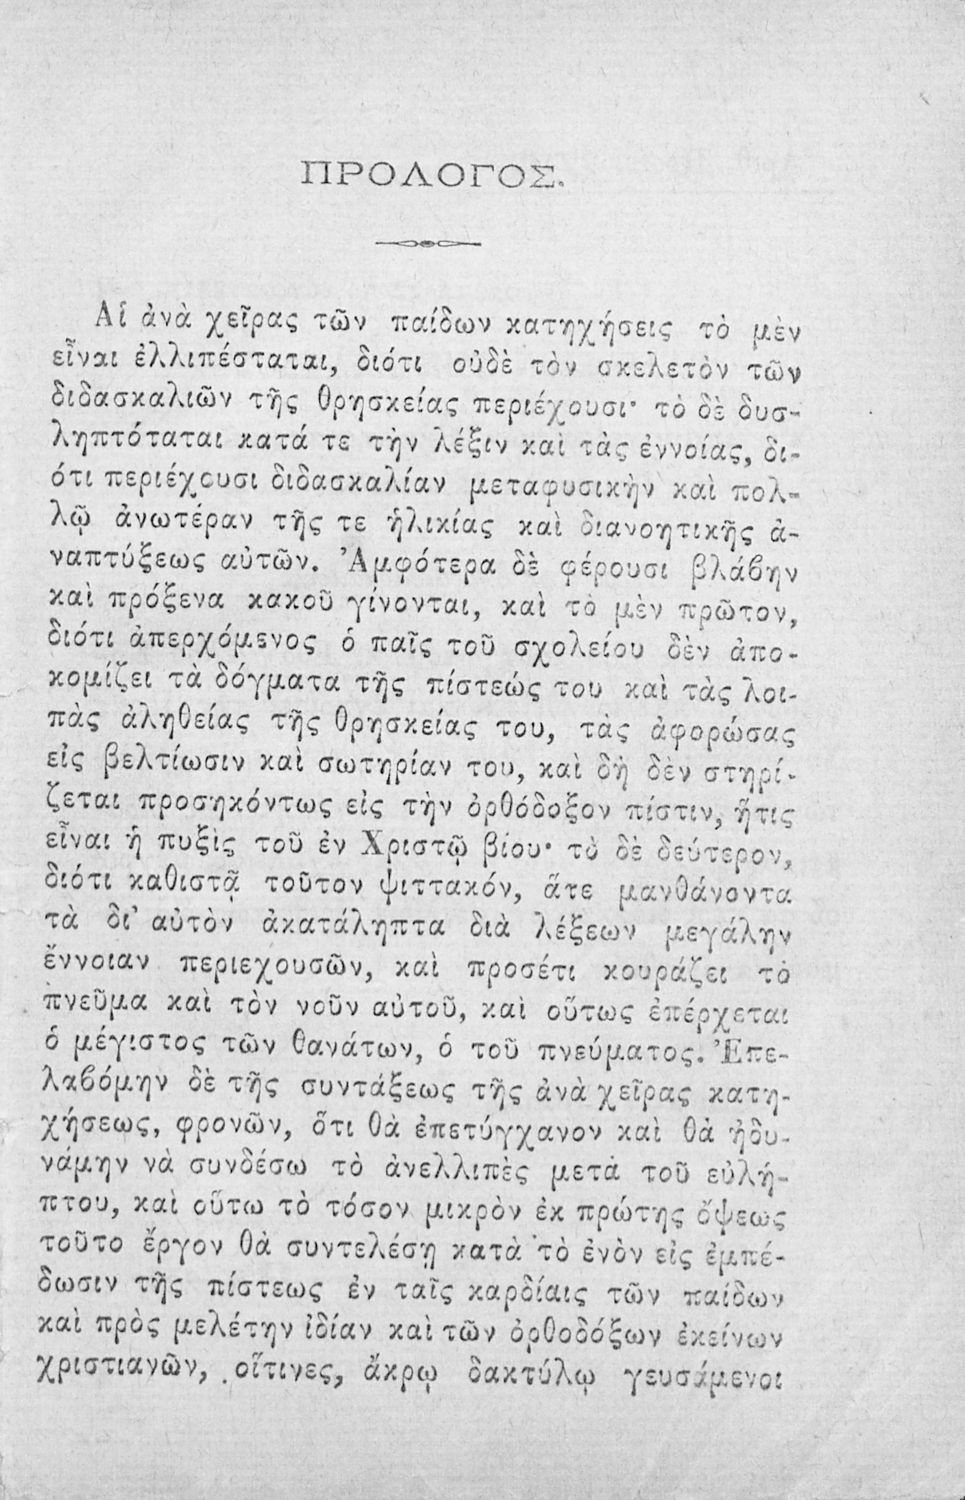 ΠΡΟΛΟΓΟΣ.
Αἱ ἀνὰ χεῖρας τῶν παίδων κατηχήσεις τὸ μὲν
εἶναι ἐλλιπέσταται, διότι οὐδὲ τὸν σκελετὸν τῶν
διδασκαλιῶν τῆς θρησκείας περιέχουσι· τὸ δὲ δυσ-
ληπτόταται κατά τε τὴν λέξιν καὶ τὰς ἐννοίας, δι-
ότι περιέχουσι διδασκαλίαν μεταφυσικὴν καὶ πολ-
λῷ ἀνωτέραν τῆς τε ἡλικίας καὶ διανοητικῆς ἀ-
ναπτύξεως αὐτῶν. Ἀμφότερα δὲ φέρουσι βλάβην
καὶ πρόξενα κακοῦ γίνονται, καὶ τὸ μὲν πρῶτον,
διότι ἀπερχόμενος ὁ παῖς τοῦ σχολείου δὲν ἀπο-
κομίζει τὰ δόγματα τῆς πίστεώς του καὶ τὰς λοι-
πὰς ἀληθείας τῆς θρησκείας του, τὰς ἀφορώσας
εἰς βελτίωσιν καὶ σωτηρίαν του, καὶ δὴ δὲν στηρί-
ζεται προσηκόντως εἰς τὴν ὀρθόδοξον πίστιν, ἥτις
εἶναι ἡ πυξὶς τοῦ ἐν Χριστῷ βίου· τὸ δὲ δεύτερον,
διότι καθιστᾷ τοῦτον ψιττακόν, ἅτε μανθάνοντα
τὰ δι' αὐτὸν ἀκατάληπτα διὰ λέξεων μεγάλην
ἔννοιαν περιεχουσῶν, καὶ προσέτι κουράζει τὸ
πνεῦμα καὶ τὸν νοῦν αὐτοῦ, καὶ οὕτως ἐπέρχεται
ὁ μέγιστος τῶν θανάτων, ὁ τοῦ πνεύματος. Ἐπε-
λαβόμην δὲ τῆς συντάξεως τῆς ἀνὰ χεῖρας κατη-
χήσεως, φρονῶν, ὅτι θὰ ἐπετύγχανον καὶ θὰ ἠδυ-
νάμην νὰ συνδέσω τὸ ἀνελλιπὲς μετὰ τοῦ εὐλή-
πτου, καὶ οὕτω τὸ τόσον μικρὸν ἐκ πρώτης ὄψεως
τοῦτο ἔργον θὰ συντελέσῃ κατὰ τὸ ἐνὸν εἰς ἐμπέ-
δωσιν τῆς πίστεως ἐν ταῖς καρδίαις τῶν παίδων
καὶ πρὸς μελέτην ἰδίαν καὶ τῶν ὀρθοδόξων ἐκείνων
χριστιανῶν, οἵτινες, ἄκρῳ δακτύλῳ γευσάμενοι